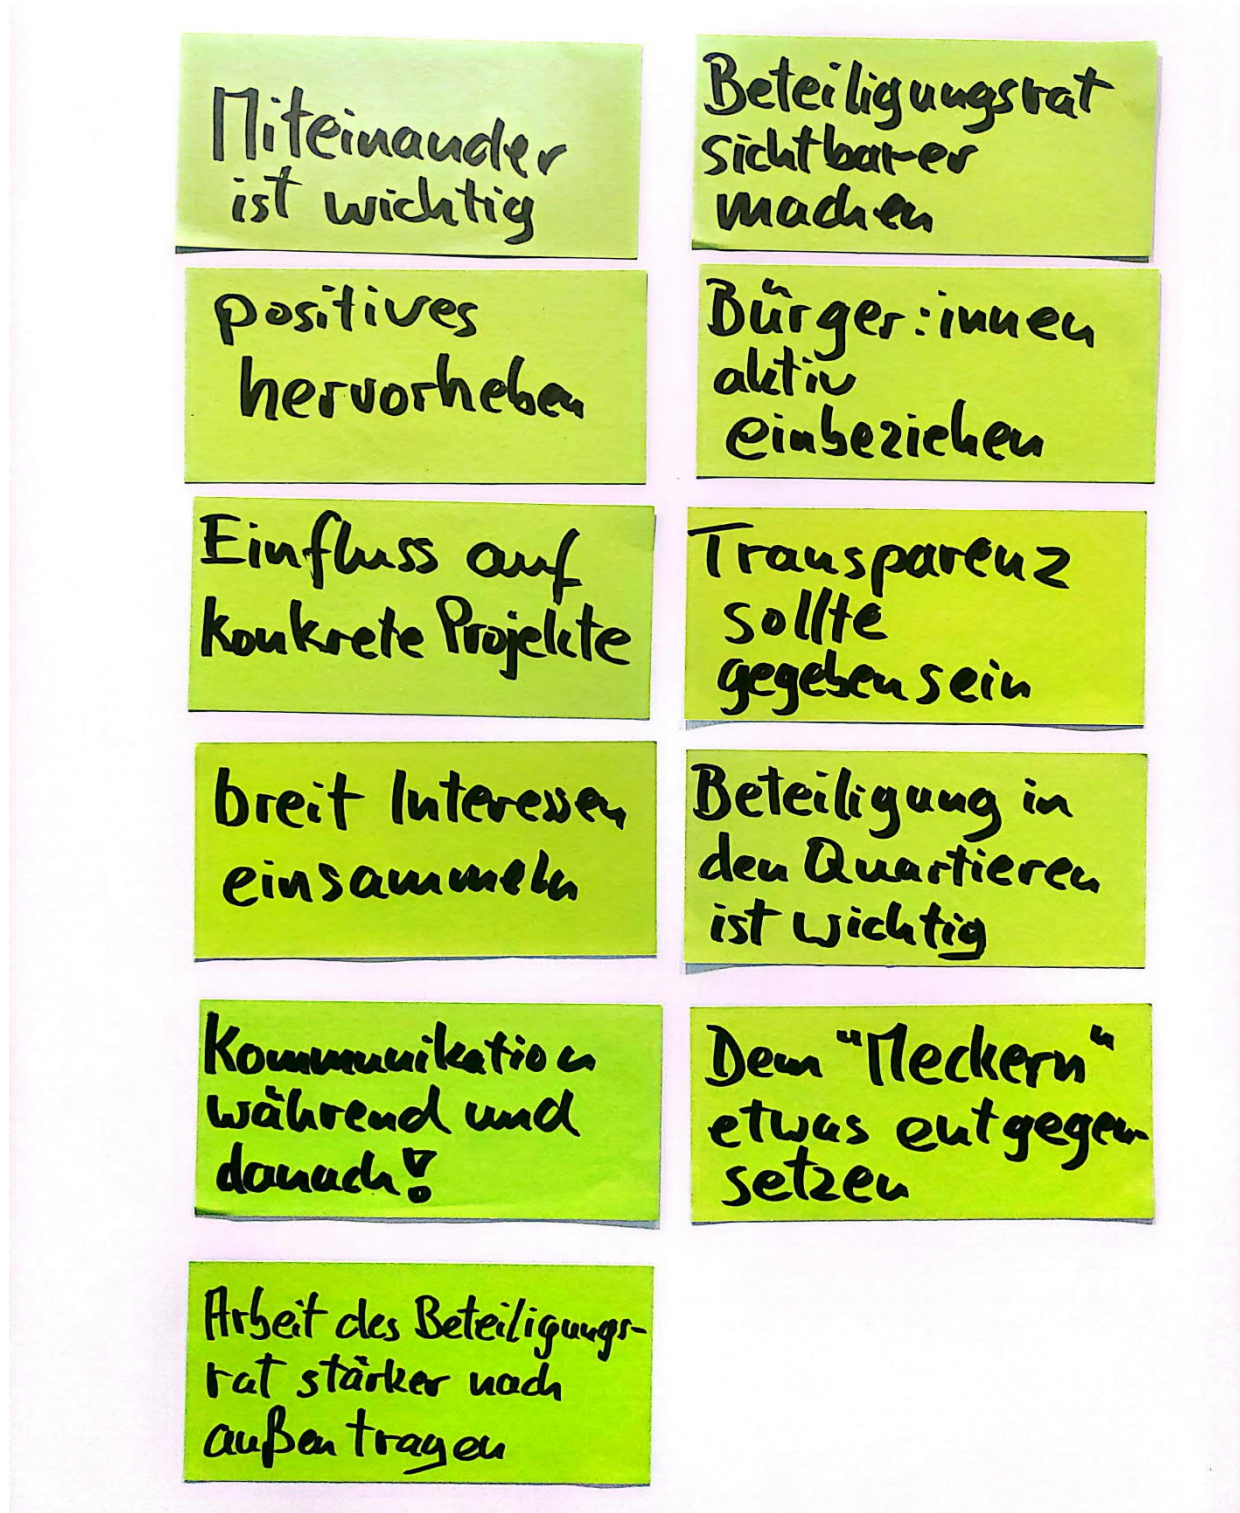 Miteinander
ist wichtig
positives
hervorheben
Einfluss auf
konkrete Projekte
breit Interessen
einsammeln
Kommunikation
während und
danach!
Arbeit des Beteiligungs-
rat stärker nach
außen tragen
Beteiligungsrat
sichtbarer
machen
Bürger:innen
aktiv
einbeziehen
Transparenz
sollte
gegeben sein
Beteiligung in
den Quartieren
ist wichtig
Dem "Meckern"
etwas entgegen-
setzen